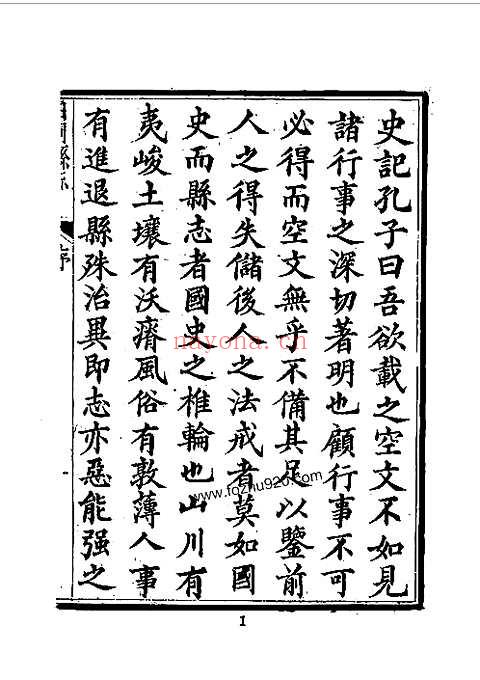 史記孔子曰吾欲載之空文不如見
諸行事之深切著明也顧行事不可
必得而空文無乎不備其足以鑒前
人之得失儲後人之法戒者莫如國
史而縣志者國史之椎輪也山川有
夷峻土壤有沃瘠風俗有敦薄人事
有進退縣殊治異即志亦惡能强之
序
nayona.cn
www.fozhu920.com
1